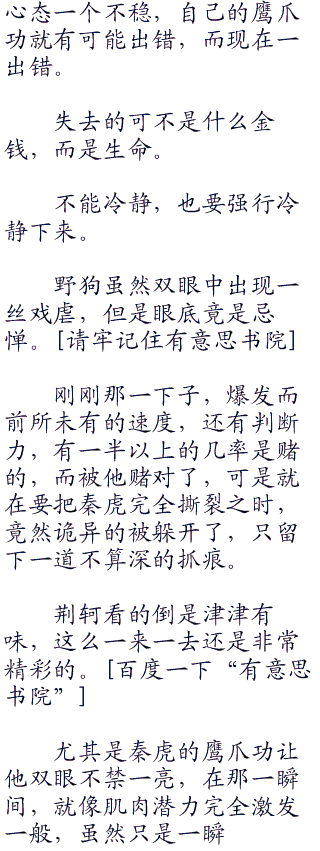 心态一个不稳，自己的鹰爪
功就有可能出错，而现在一
出错。
失去的可不是什么金
钱，而是生命。
不能冷静，也要强行冷
静下来。
野狗虽然双眼中出现一
丝戏虐，但是眼底竟是忌
惮。[请牢记住有意思书院]
刚刚那一下子，爆发而
前所未有的速度，还有判断
力，有一半以上的几率是赌
的，而被他赌对了，可是就
在要把秦虎完全撕裂之时，
竟然诡异的被躲开了，只留
下一道不算深的抓痕。
荆轲看的倒是津津有
味，这么一来一去还是非常
精彩的。[百度一下“有意思
书院”]
尤其是秦虎的鹰爪功让
他双眼不禁一亮，在那一瞬
间，就像肌肉潜力完全激发
一般，虽然只是一瞬